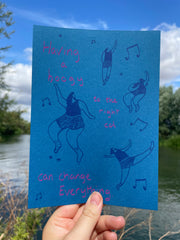 Having
a
boogie
to the
right
can change
Everything